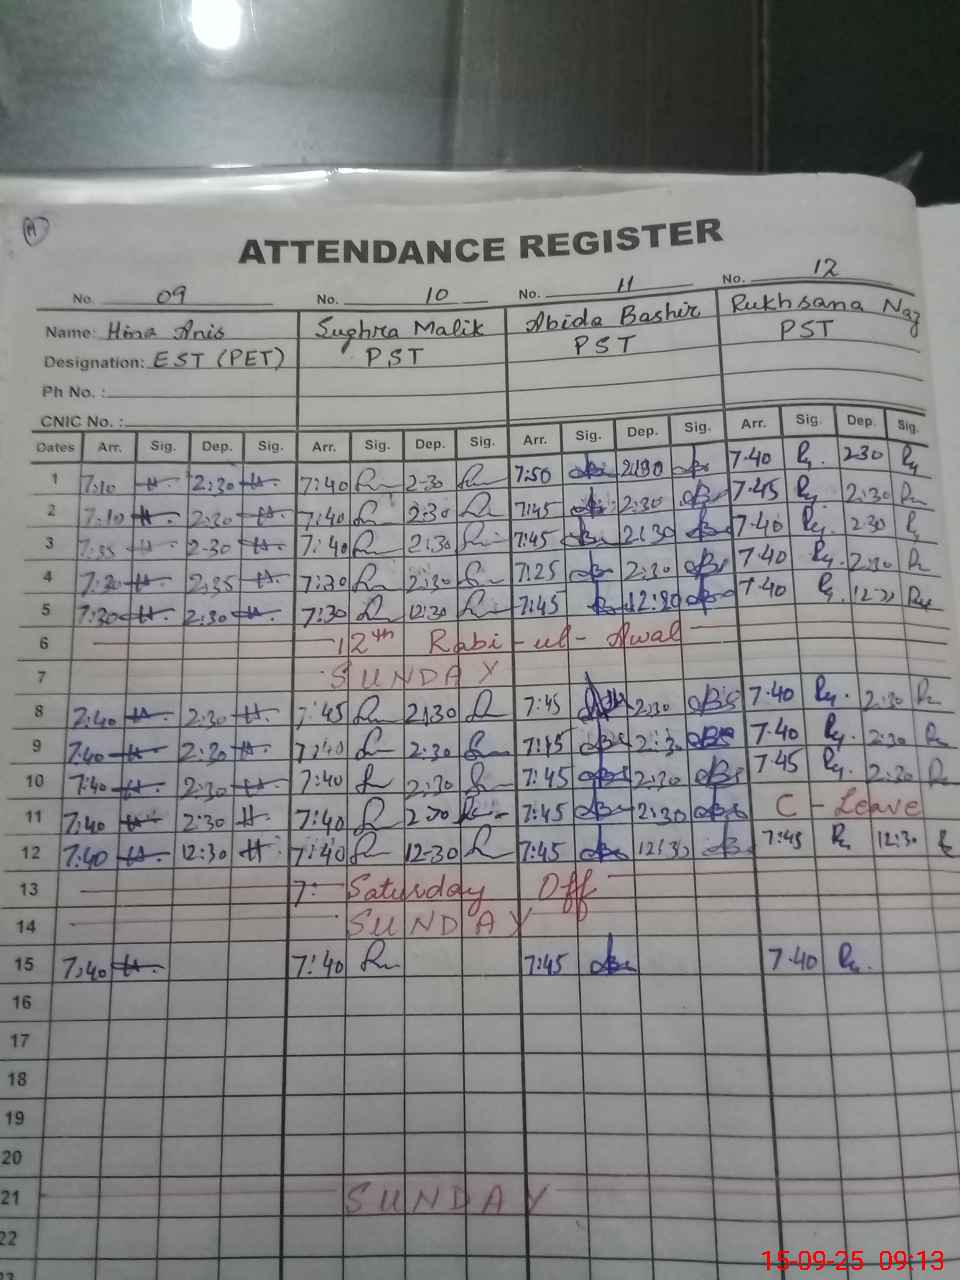 A
ATTENDANCE REGISTER
No. 09 No. 10 No. 11 No. 12
Name: Hina Anis Sughra Malik Abida Bashir Rukhsana Naz
Designation: EST (PET) PST PST PST
Ph No. :
CNIC No. :
Dates Arr. Sig. Dep. Sig. Arr. Sig. Dep. Sig. Arr. Sig. Dep. Sig. Arr. Sig. Dep. Sig.
1 7:10 H. 2:30 H. 7:40 2-30 7:50 2:30 7.40 2.30
2 7:10 H. 2:30 H. 7:40 2:30 7:45 2:30 7.45 2:30
3 H. 2-30 H. 7:40 2:30 7:45 2:30 7.40 2.30
4 H. 2:35 H. 7:30 2:30 7:25 2:30 7.40 2:30
5 7:30 H. 2:30 H. 7:30 12:30 7:45 12:30 7.40
6 12th Rabi-ul-Awal
7 SUNDAY
8 H. 2:30 H. 7:45 2:30 7:45 2:30 7.40 2:30
9 7:40 H. 2:30 H. 7:40 2:30 7:45 7.40 2:30
10 7:40 H. 2:30 H. 7:40 2:30 7:45 2:30 7.45 2:30
11 7:40 H. 2:30 H. 7:40 7:45 2:30 C-Leave
12 7:40 H. 12:30 H. 7:40 12-30 7:45 12:30 7:45 12:30
13 7: Saturday Off
14 SUNDAY
15 7:40 H. 7:40 7:45 7.40
16
17
18
19
20
21 SUNDAY
22
23
15-09-25 09:13